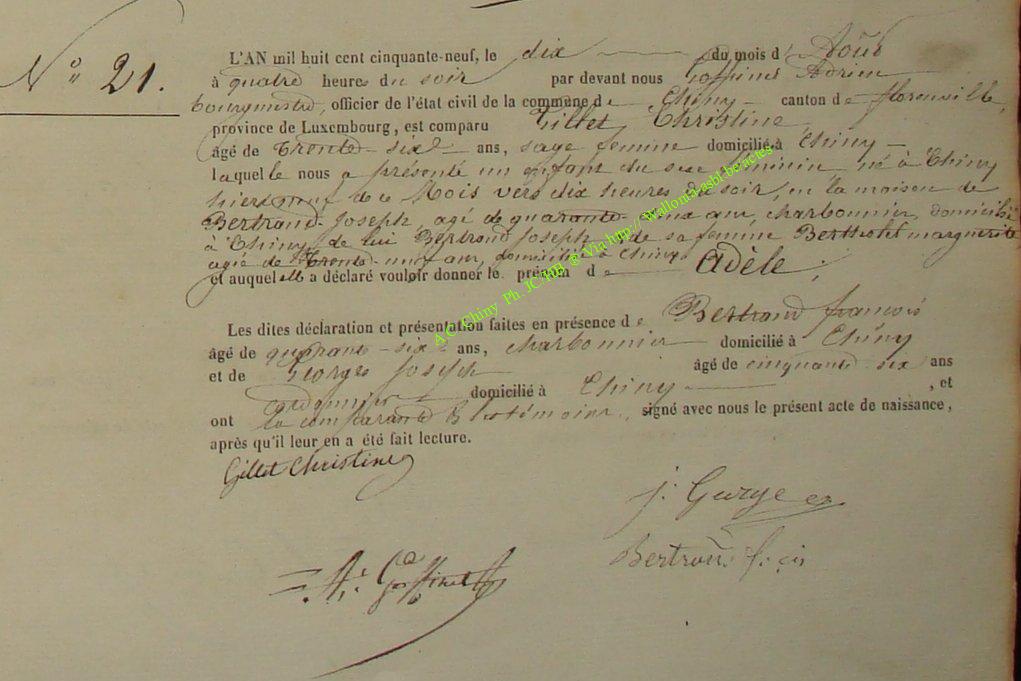 N° 21.
L'AN mil huit cent cinquante-neuf, le dix du mois d'Août
à quatre heures du soir par devant nous Goffinet Adrien
bourgmestre, officier de l'état civil de la commune de Chiny canton de florenville,
province de Luxembourg, est comparu Gillet, Christine,
âgé de Trente-six ans, sage femme domicilié à Chiny
laquelle nous a présenté un enfant du sexe féminin né à Chiny
hier neuf de ce Mois vers dix heures du soir, en la maison de
Bertrand Joseph, agé de quarante- ans, charbonnier, domicilié
à Chiny, de lui Bertrand Joseph & de sa femme Bertholet marguerite
agée de Trente-neuf ans, domiciliée à Chiny
et auquel elle a déclaré vouloir donner le prénom de Adèle.
Les dites déclaration et présentation faites en présence de Bertrand françois
âgé de quarante-six ans, charbonnier domicilié à Chiny
et de Georges Joseph âgé de cinquante six ans
cordonnier domicilié à Chiny, et
ont la comparante & les témoins, signé avec nous le présent acte de naissance,
après qu'il leur en a été fait lecture.
Gillet Christine
j: Gorge
Bertrand
A: Goffinet
A.C. Chiny Ph. JC @ Via http:// Wallonia-asbl-be/actes